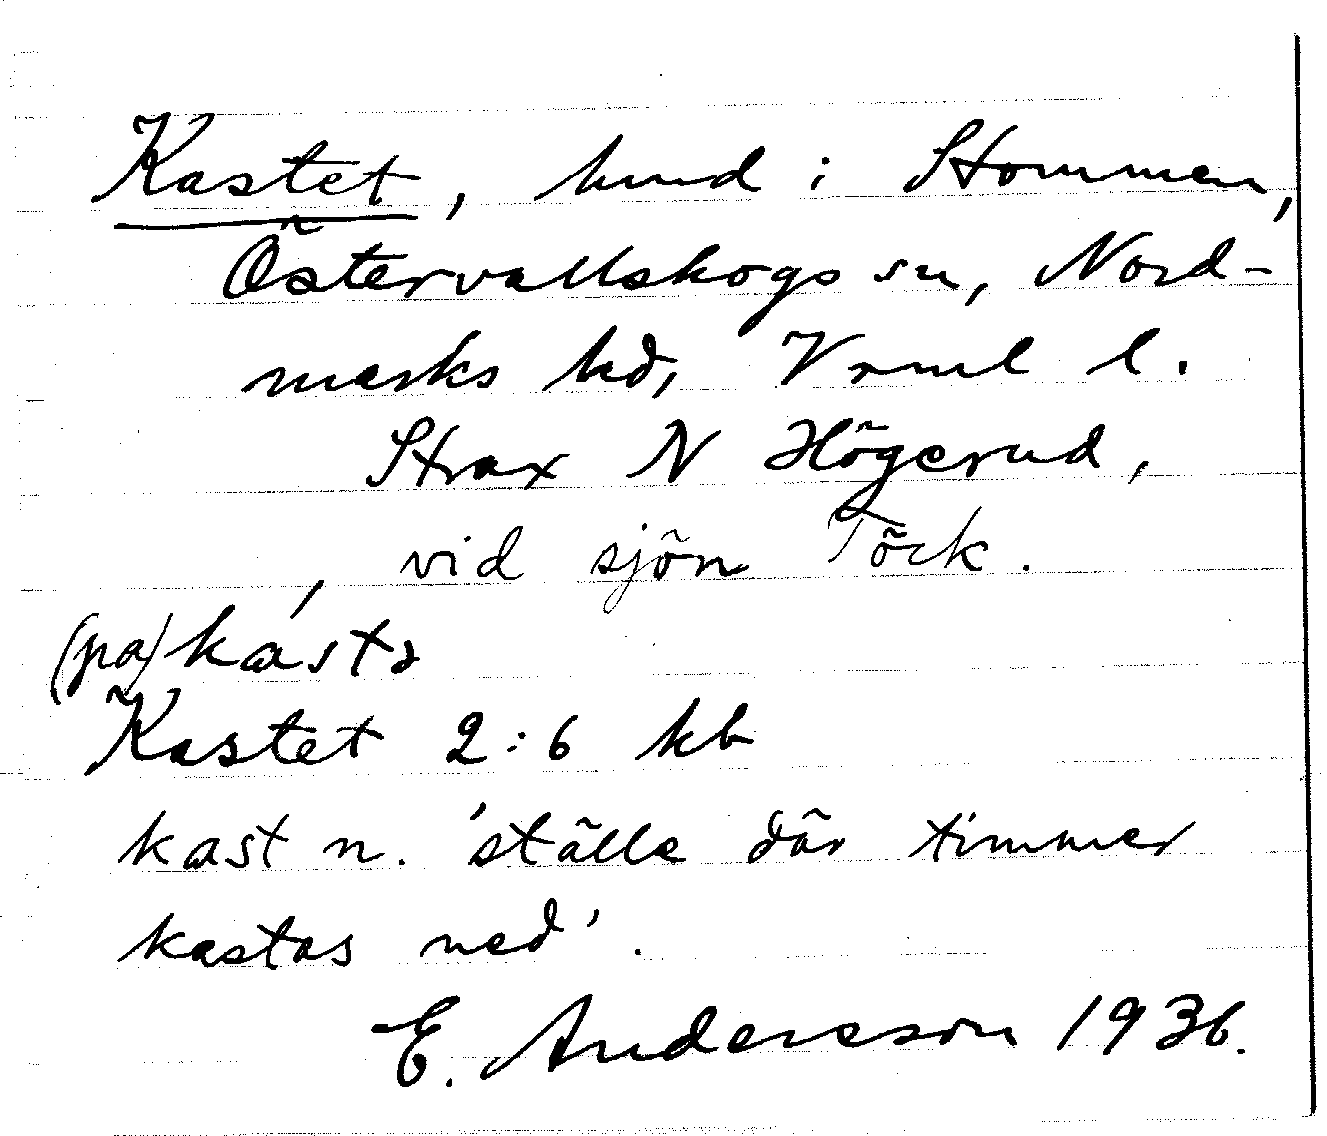 Kastet, hmd i Stommen,
Östervallskogs sn, Nord-
marks hd, Vrml l.
Strax N Högerud,
vid sjön Töck.
(pa) kásta
Kastet 2:6 kb
kast n. 'ställe där timmer
kastas ned'.
E. Andersson 1936.